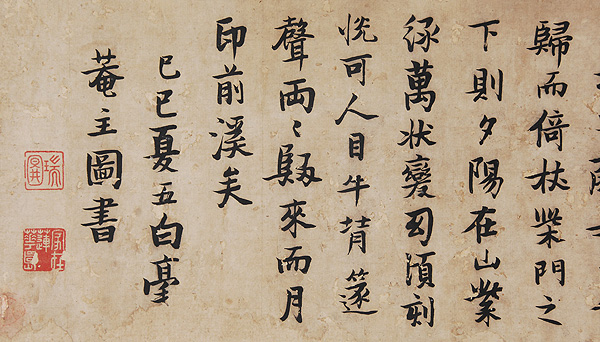 歸而倚杖柴門之
下則夕陽在山紫
綠萬狀變幻頃刻
恍可人目牛背篴
聲両〻歸來而月
印前溪矣
己巳夏五白毫
菴主圖書
瑞圖